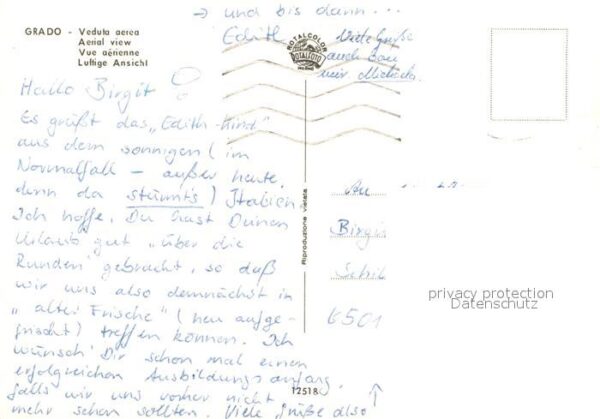 GRADO - Veduta aerea
Aerial view
Vue aérienne
Luftige Ansicht
Hallo Birgit
Es grüßt das "Edith-Kind"
aus dem sonnigen (im
Normalfall - außer heute,
denn da stürmt's) Italien.
Ich hoffe, Du hast Deinen
Urlaub gut "über die
Runden" gebracht, so daß
wir uns also demnächst in
"alter Frische" (neu aufge-
frischt) treffen können. Ich
wünsch' Dir schon mal einen
erfolgreichen Ausbildungsanfang,
falls wir uns vorher nicht
mehr sehen sollten. Viele Grüße also
→ und bis dann...
Edith
Viele Grüße
auch
ROTALCOLOR
ROTALFOTO
Riproduzione vietata
12518
An
Birgit
Schil
6501
privacy protection
Datenschutz